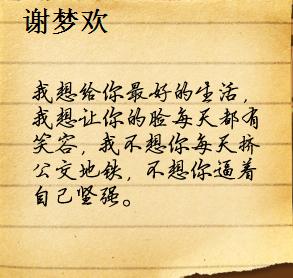 谢梦欢
我想给你最好的生活，
我想让你的脸每天都有
笑容，我不想你每天挤
公交地铁，不想你逼着
自己坚强。